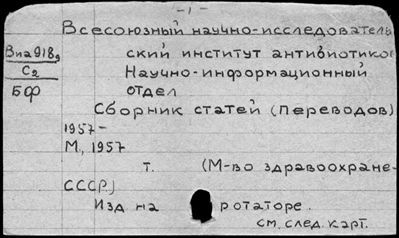 -1-
Всесоюзный научно-исследователь
Виа918₉
ский институт антибиотико
С₂
Научно-информационный
БФ
отдел
Сборник статей (Переводов)
1957-
М, 1957
т. (М-во здравоохране-
СССР)
Изд на ротаторе.
см. след. карт.